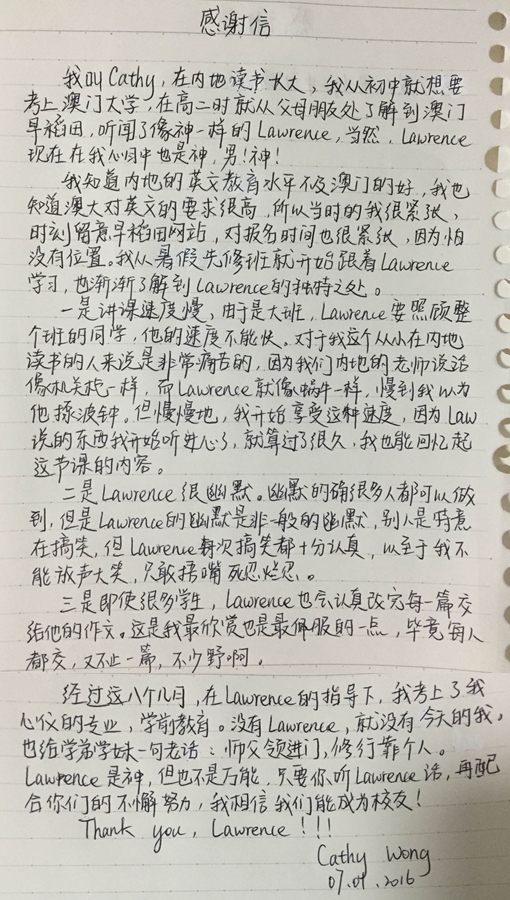 感谢信
我叫Cathy，在内地读书长大，我从初中就想要
考上澳门大学，在高二时就从父母朋友处了解到澳门
早稻田，听闻了像神一样的Lawrence，当然，Lawrence
现在在我心目中也是神，男！神！
我知道内地的英文教育水平不及澳门的好，我也
知道澳大对英文的要求很高，所以当时的我很紧张，
时刻留意早稻田网站，对报名时间也很紧张，因为怕
没有位置。我从暑假先修班就开始跟着Lawrence
学习，也渐渐了解到Lawrence的独特之处。
一是讲课速度慢，由于是大班，Lawrence要照顾整
个班的同学，他的速度不能快。对于我这个从小在内地
读书的人来说是非常痛苦的，因为我们内地的老师说话
像机关枪一样，而Lawrence就像蜗牛一样，慢到我以为
他揼波钟。但慢慢地，我开始享受这种速度，因为Law
说的东西我开始听进心了，就算过了很久，我也能回忆起
这节课的内容。
二是Lawrence很幽默。幽默的确很多人都可以做
到，但是Lawrence的幽默是非一般的幽默，别人是特意
在搞笑，但Lawrence每次搞笑都十分认真，以至于我不
能放声大笑，只敢捂嘴死忍烂忍。
三是即使很多学生，Lawrence也会认真改完每一篇交
给他的作文。这是我最欣赏也是最佩服的一点，毕竟每人
都交，又不止一篇，不少野啊。
经过这八个几月，在Lawrence的指导下，我考上了我
心仪的专业，学前教育。没有Lawrence，就没有今天的我，
也给学弟学妹一句老话：师父领进门，修行靠个人。
Lawrence是神，但也不是万能，只要你听Lawrence话，再配
合你们的不懈努力，我相信我们能成为校友！
Thank you, Lawrence！！！
Cathy Wong
07.01.2016